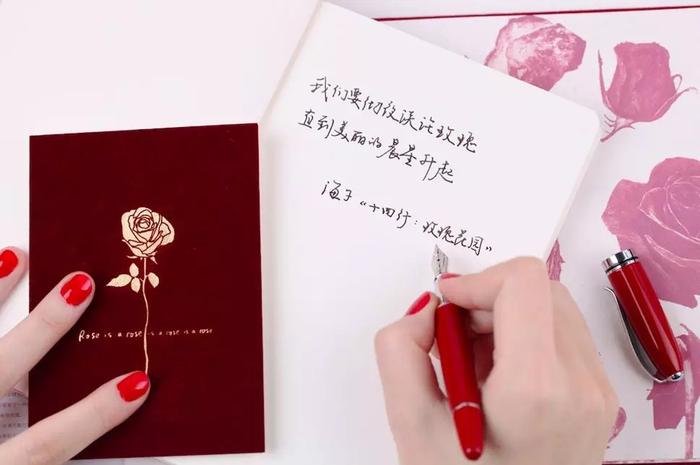 我们要彻夜谈论玫瑰
直到美丽的晨星升起
海子“十四行：玫瑰花园”
Rose is a rose is a rose is a rose